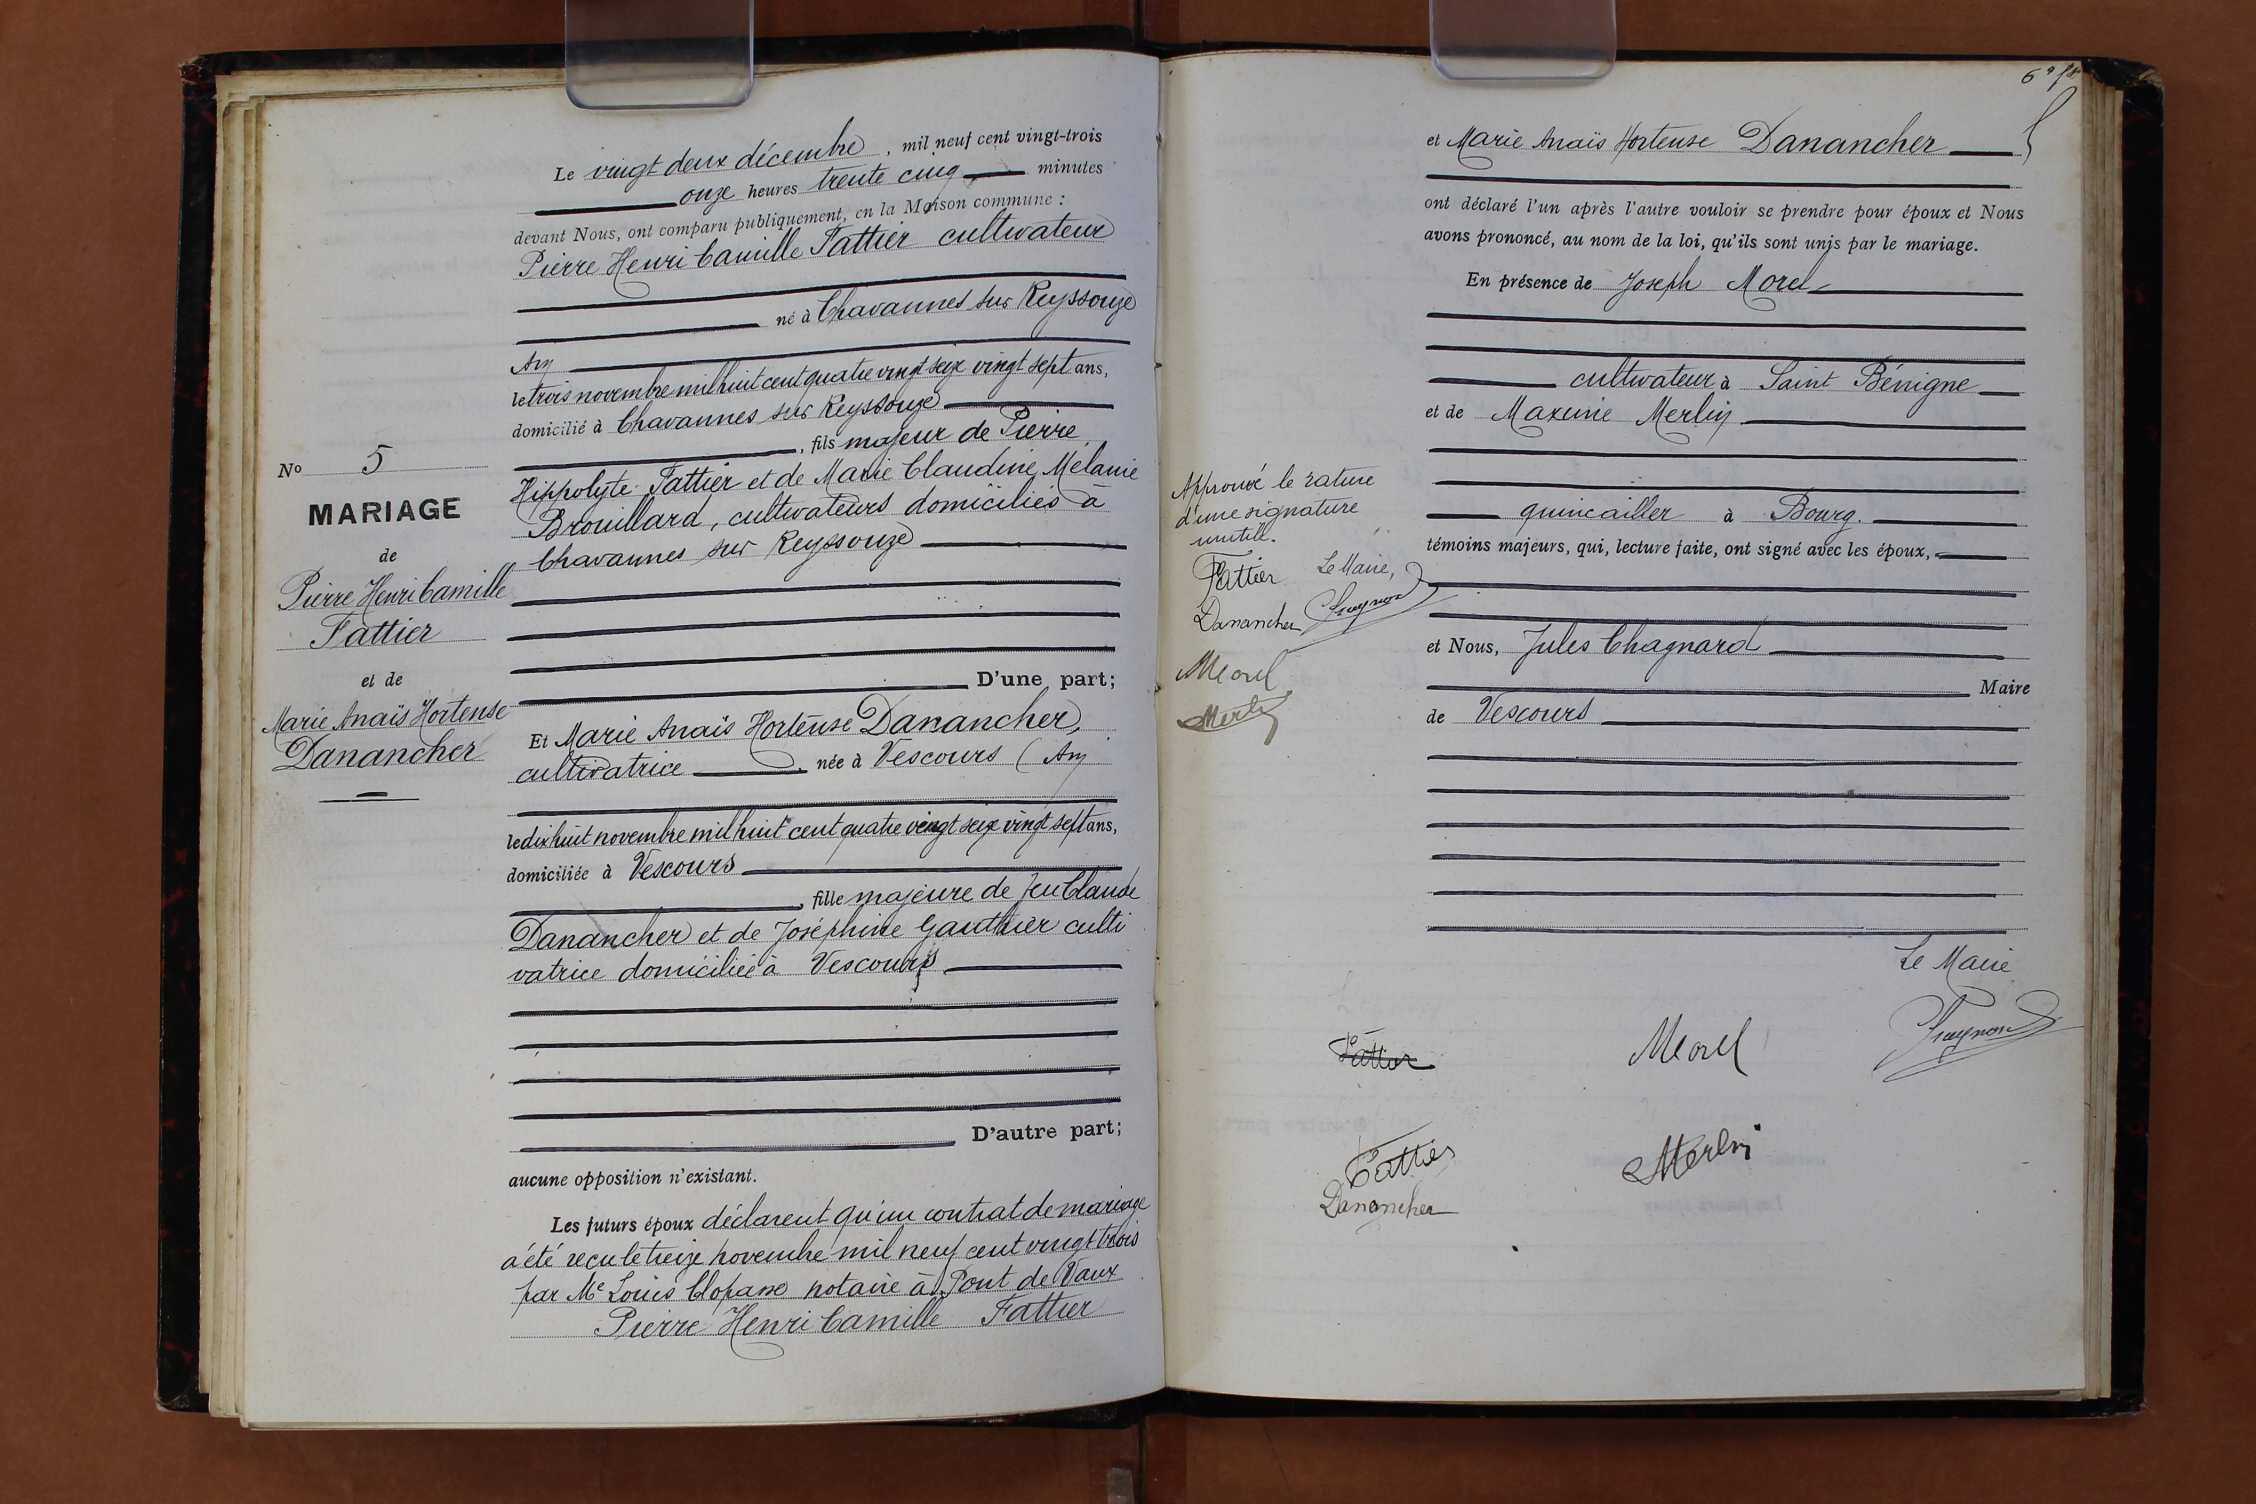 Le vingt deux décembre, mil neuf cent vingt-trois
onze heures trente cinq minutes
devant Nous, ont comparu publiquement, en la Maison commune :
Pierre Henri Camille Fattier cultivateur
né à Chavannes sur Reyssouze
Ain
le trois novembre mil huit cent quatre vingt seize vingt sept ans,
domicilié à Chavannes sur Reyssouze
, fils majeur de Pierre
Hippolyte Fattier et de Marie Claudine Mélanie
Brouillard, cultivateurs domiciliés à
Chavannes sur Reyssouze
D'une part;
Et Marie Anaïs Hortense Danancher,
cultivatrice, née à Vescours (Ain
le dix huit novembre mil huit cent quatre vingt seize vingt sept ans,
domiciliée à Vescours
, fille majeure de feu Claude
Danancher et de Joséphine Gauthier culti
vatrice domiciliée à Vescours
D'autre part;
aucune opposition n'existant.
Les futurs époux déclarent qu'un contrat de mariage
a été reçu le treize novembre mil neuf cent vingt trois
par Me Louis notaire à Pont de Vaux
Pierre Henri Camille Fattier
No 5
MARIAGE
de
Pierre Henri Camille
Fattier
et de
Marie Anaïs Hortense
Danancher
et Marie Anaïs Hortense Danancher
ont déclaré l'un après l'autre vouloir se prendre pour époux et Nous
avons prononcé, au nom de la loi, qu'ils sont unis par le mariage.
En présence de Joseph Morel
cultivateur à Saint Bénigne
et de Maxime Merlin
quincailler à Bourg.
témoins majeurs, qui, lecture faite, ont signé avec les époux,
et Nous, Jules Chagnard
Maire
de Vescours
Approuvé le rature
d'une signature
inutile.
Fattier Le Maire,
Danancher Chagnard
Morel
Merlin
Le Maire
Fattier Morel Chagnard
Fattier Merlin
Danancher